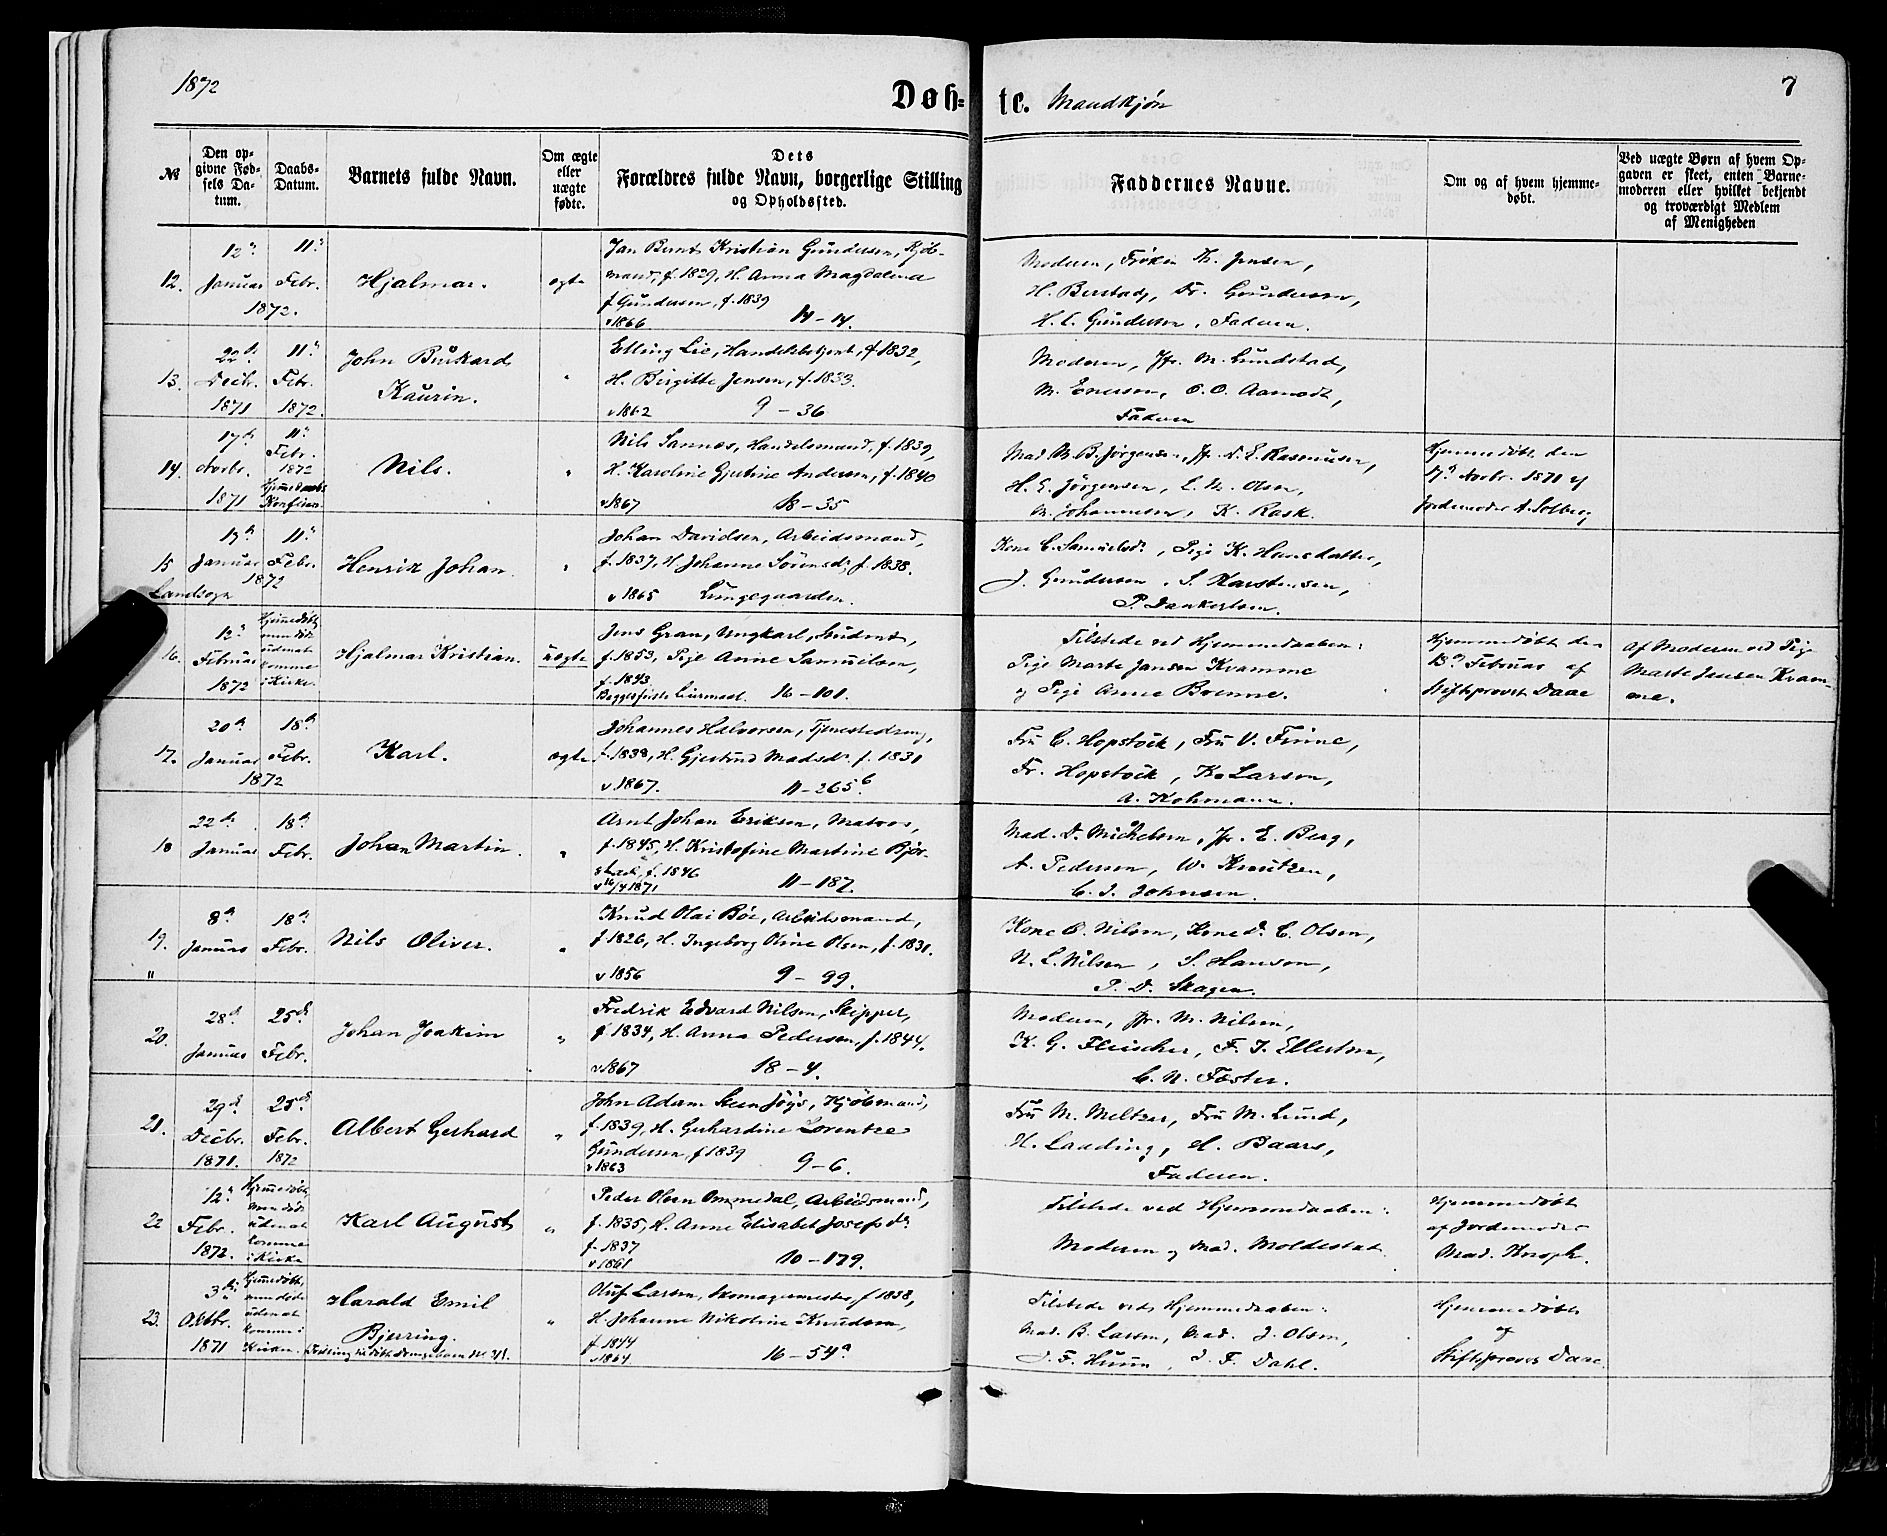 1872
Døb-
te. Mandkjøn
7
№
Den op-
givne Fød-
sels Da-
tum.
Daabs-
Datum.
Barnets fulde Navn.
Om ægte
eller
uægte
fødte.
Dets
Forældres fulde Navn, borgerlige Stilling
og Opholdssted.
Faddernes Navne.
Om og af hvem hjemme-
døbt.
Ved uægte Børn af hvem Op-
gaven er skeet, enten Barne-
moderen eller hvilket bekjendt
og troværdigt Medlem
af Menigheden
12.
12te
Januar
1872.
11te
Febr.
Hjalmar.
ægte
Jan Bernt Kristian Gundersen, Kjøb-
mand, f. 1829, H. Anna Magdalena
f Gundersen, f. 1839
v 1866 14-14.
Moderen, Frøken Th. Jensen,
H. Berstad, Fr. Gundersen,
H. C. Gundersen, Faderen.
13.
22de
Decbr.
1871
11te
Febr.
1872.
John Burkard
Kaurin.
"
Elling Lie, Handelsbetjent, f 1832,
H. Birgitte Jensen, f. 1833.
v 1862 9-36
Moderen, Jfr. M. Lundstad,
M. Enersen, O. O. Aamodt,
Faderen
14.
17de
Novbr.
1871
11te
Febr.
1872
Hjemmedaabs
Konfirm.
Nils.
"
Nils Sannes, Handelsmand, f. 1839,
H. Karoline Gjertine Andersen, f. 1840
v 1867 18-35
Mad M. B. Jørgensen, Jfr. N. E. Rasmusen,
H. E. Jörgensen, L. M. Olsen,
M. Johannesen, K. Rask.
Hjemmedøbt den
17de Novbr. 1871 af
Jordemoder A. Solberg
15
Landsogn
17de
Januar
1872
11te
Febr.
Henrik Johan.
"
Johan Davidsen, Arbeidsmand,
f. 1837, H Johanne Sörensd, f. 1838.
v 1865 Lungegaarden.
Kone C. Samuelsdr, Pige K. Hansdatter,
J. Gundersen, S. Karstensen,
P. Dankertsen.
16.
12te
Februar
1872
Hjemmedøbt,
men død
uden at
komme
i Kirke.
Hjalmar Kristian.
uægte
Jens Gran, Ungkarl, Student,
f. 1853, Pige Anne Samuelsen,
f. 1843.
16-101.
Tilstede ved Hjemmedaaben:
Pige Marte Jansen Kvamme
og Pige Anna Brenne.
Hjemmedøbt den
13de Februar af
Stiftsprovst Daae
Af Moderen ved Pige
Marte Jansen Kvam-
me.
17.
20de
Januar
1872
18de
Febr.
Karl.
ægte
Johannes Halvorsen, Tjenestedreng,
f. 1838, H. Gjertrud Madsdr f. 1831
v. 1867. 11-265b
Fru C. Hopstock, Fru V. Finne,
Fr. Hopstock, K. Larsen,
A. Kohmann.
18
22de
Januar
18de
Febr.
Johan Martin.
"
Arnt Johan Eriksen, Matros,
f. 1845, H. Kristofine Martine Bjør-
f. 1846
v 16/4 1871 11-187.
Mad. D. Michelsen, Jfr. E. Berg,
A. Pedersen, W. Knutzen,
C. J. Johnsen.
19.
"
8de
Januar
18de
Febr.
Nils Oliver.
"
Knud Olai Böe, Arbeidsmand,
f 1826, H. Ingeborg Oline Olsen, f. 1831.
v 1856 9-99.
Kone O. Nilsen, Kone D. C. Olsen,
N. L. Nilsen, S. Hansen,
P. D. Skagen.
20.
28de
Januar
25de
Febr.
Johan Joakim
"
Fredrik Edvard Nilsen, Skipper,
f 1834, H. Anna Pedersen, f. 1844.
v 1867 18-4.
Moderen, Jfr. M. Nilsen,
K. G. Fleischer, F. J. Ellertsen,
C. N. Foster.
21.
29de
Decbr.
1871.
25de
Febr.
1872
Albert Gerhard
"
John Adam Steen Joys, Kjöbmand,
f. 1839, H. Gerhardine Lorentze
Gundersen, f 1839
v 1863 9-6.
Fru M. Meltzer, Fru M. Lund,
H. Laading, H. Baars,
Faderen.
22
12te
Febr.
1872.
Hjemmedøbt,
men død
uden at
komme
i Kirke
Karl August
"
Peder Olsen Ommedal, Arbeidsmand,
f. 1835, H. Anne Elisabet Josefsdr
f. 1837
v 1861 10-179.
Tilstede ved Hjemmedaaben:
Moderen og Mad. Moldestad
Hjemmedøbt
af Jordemoder
Mad. Knoph.
23.
3die
Oktbr.
1871
Hjemmedøbt,
men død
uden at
komme i
Kirken.
Harald Emil
Bjerring.
"
Oluf Larsen, Skomagermester, f 1838,
H. Johanne Nikoline Knudsen,
f 1844
v 1864 16-54a
Tilstede ved Hjemmedaaben:
Mad. B. Larsen, Mad. J. Olsen,
J. F. Dahl.
Hjemmedøbt
af
Stiftsprovst Daae.